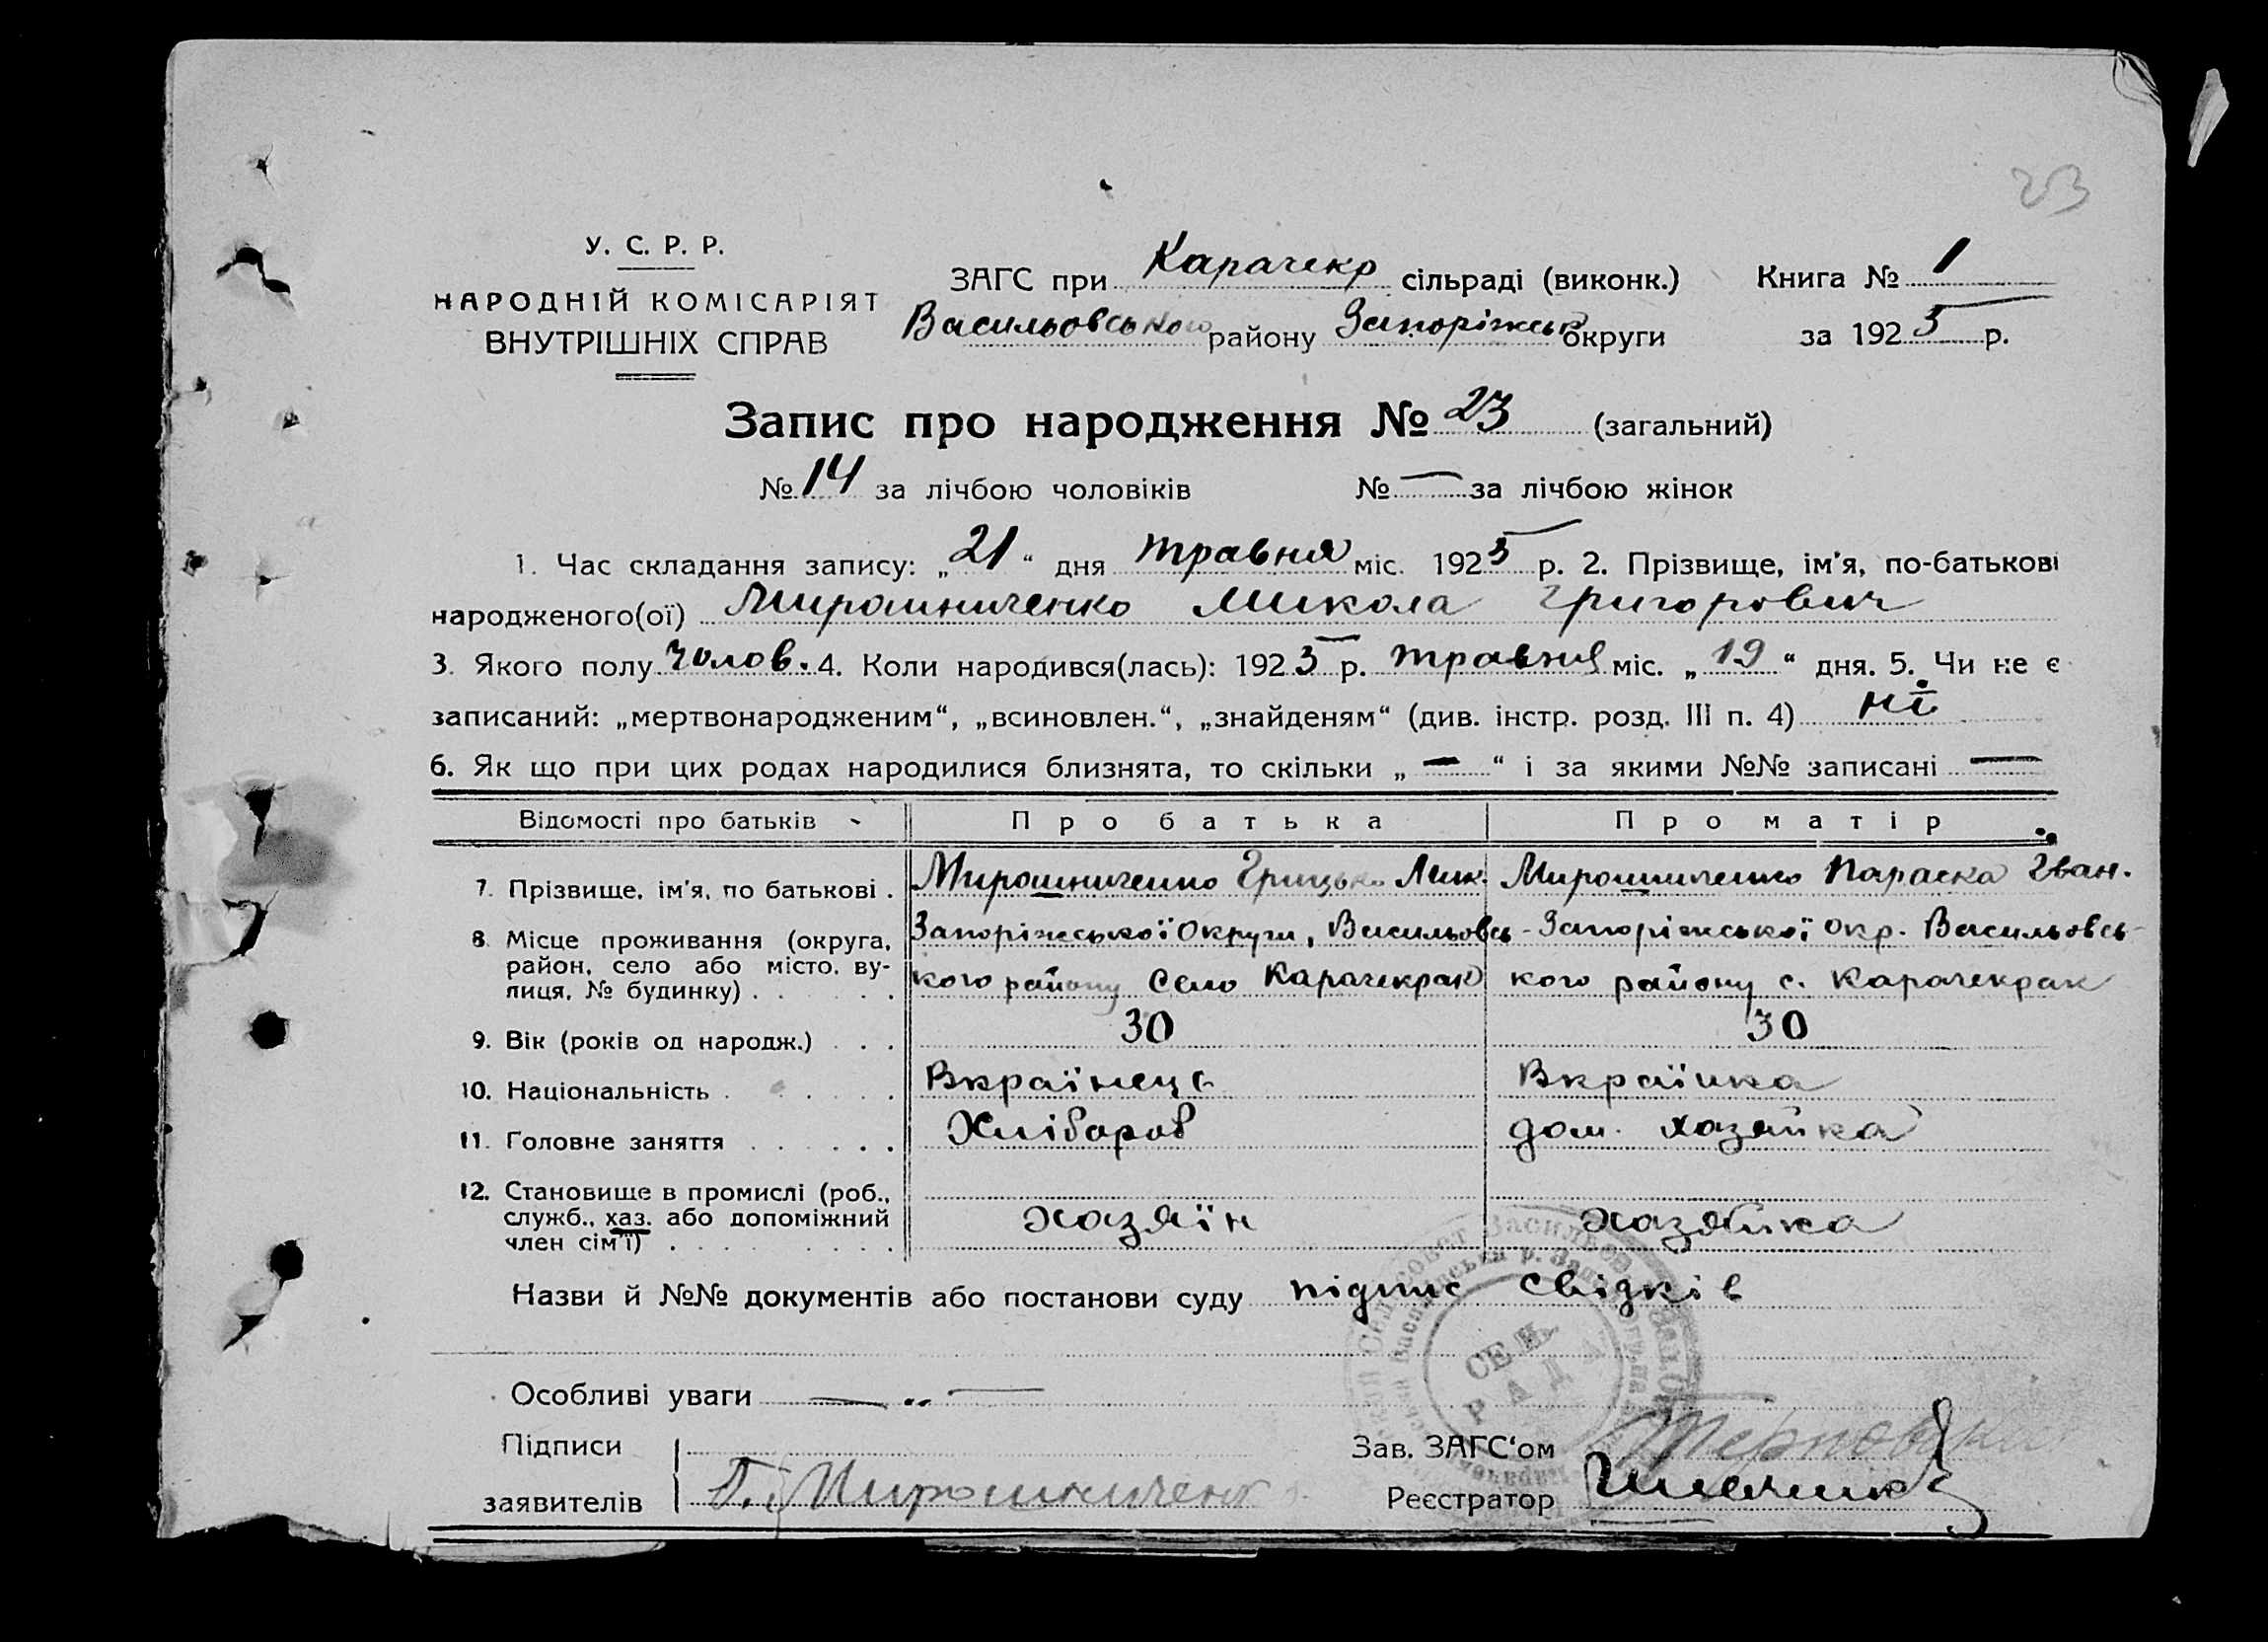 23
У. С. Р. Р.
НАРОДНІЙ КОМІСАРІЯТ
ВНУТРІШНІХ СПРАВ
ЗАГС при Карачекр сільраді (виконк.) Книга № 1
Васильовського району Запоріжськ округи за 1925 р.
Запис про народження № 23 (загальний)
№ 14 за лічбою чоловіків № — за лічбою жінок
1. Час складання запису: „21“ дня травня міс. 1925 р. 2. Прізвище, ім'я, по-батькові
народженого(ої) Мирошниченко Микола Григорович
3. Якого полу чолов. 4. Коли народився(лась): 1925 р. травня міс. „19“ дня. 5. Чи не є
записаний: „мертвонародженим“, „всиновлен.“, „знайденям“ (див. інстр. розд. III п. 4) ні
6. Як що при цих родах народилися близнята, то скільки „—“ і за якими №№ записані —
Відомості про батьків Про батька Про матір
7. Прізвище, ім'я, по батькові . Мирошниченко Грицько Мик. Мирошниченко Параска Іван.
8. Місце проживання (округа, Запоріжської Округи, Васильовсь- Запоріжської окр. Васильовсь-
район, село або місто, ву-
лиця, № будинку) . . . . кого району Село Карачекрак кого району с. Карачекрак
9. Вік (років од народж.) . . . 30 30
10. Національність . . . . . . Вкраїнець Вкраїнка
11. Головне заняття . . . . . . Хлібороб дом. хазяйка
12. Становище в промислі (роб.,
служб., хаз. або допоміжний хазяїн хазяйка
член сім'ї) . . . . . . . . .
Назви й №№ документів або постанови суду підпис свідків
СЕЛ.
РАДА
Особливі уваги — „ —
Підписи Зав. ЗАГС‘ом
заявителів Г. Мирошниченк Реєстратор